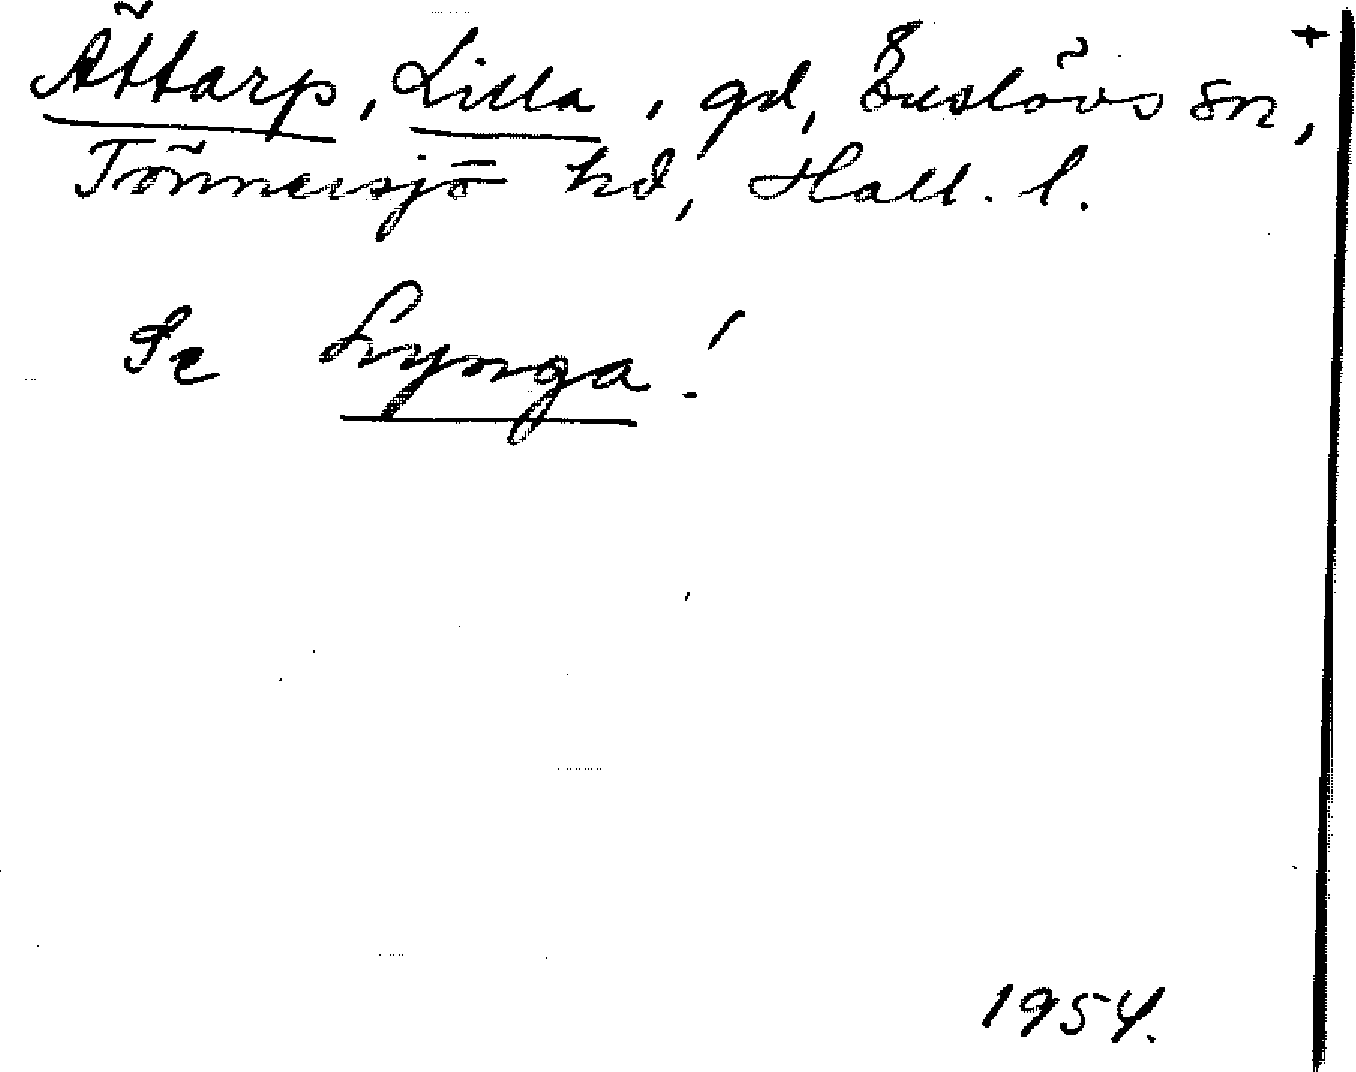 Ättarp, Lilla, gd, Eeslövs sn, +
Tönnersjö hd, Hall. l.
Se Lynga!
1954.